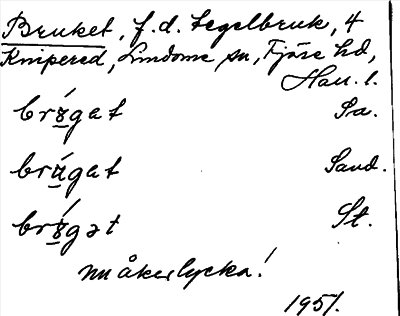 Bruket, f.d. tegelbruk, 4
Knipered, Lindome sn, Fjäre hd,
Hall. l.
brý̱gat Sa.
brṹ̱gat Sand.
brý̱gət St.
nu åkerlycka!
1951.